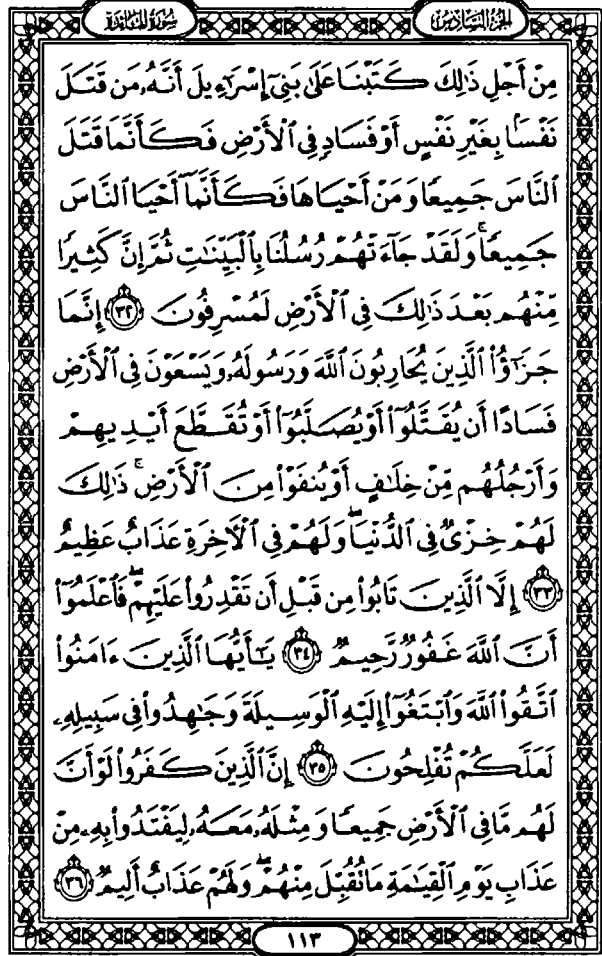 الجزء السادس
سورة المائدة
مِنْ أَجْلِ ذَٰلِكَ كَتَبْنَا عَلَىٰ بَنِىٓ إِسْرَٰٓءِيلَ أَنَّهُۥ مَن قَتَلَ
نَفْسًۢا بِغَيْرِ نَفْسٍ أَوْ فَسَادٍ فِى ٱلْأَرْضِ فَكَأَنَّمَا قَتَلَ
ٱلنَّاسَ جَمِيعًا وَمَنْ أَحْيَاهَا فَكَأَنَّمَآ أَحْيَا ٱلنَّاسَ
جَمِيعًا ۚ وَلَقَدْ جَآءَتْهُمْ رُسُلُنَا بِٱلْبَيِّنَٰتِ ثُمَّ إِنَّ كَثِيرًا
مِّنْهُم بَعْدَ ذَٰلِكَ فِى ٱلْأَرْضِ لَمُسْرِفُونَ ﴿٣٢﴾ إِنَّمَا
جَزَٰٓؤُا۟ ٱلَّذِينَ يُحَارِبُونَ ٱللَّهَ وَرَسُولَهُۥ وَيَسْعَوْنَ فِى ٱلْأَرْضِ
فَسَادًا أَن يُقَتَّلُوٓا۟ أَوْ يُصَلَّبُوٓا۟ أَوْ تُقَطَّعَ أَيْدِيهِمْ
وَأَرْجُلُهُم مِّنْ خِلَٰفٍ أَوْ يُنفَوْا۟ مِنَ ٱلْأَرْضِ ۚ ذَٰلِكَ
لَهُمْ خِزْىٌ فِى ٱلدُّنْيَا ۖ وَلَهُمْ فِى ٱلْـَٔاخِرَةِ عَذَابٌ عَظِيمٌ
﴿٣٣﴾ إِلَّا ٱلَّذِينَ تَابُوا۟ مِن قَبْلِ أَن تَقْدِرُوا۟ عَلَيْهِمْ ۖ فَٱعْلَمُوٓا۟
أَنَّ ٱللَّهَ غَفُورٌ رَّحِيمٌ ﴿٣٤﴾ يَٰٓأَيُّهَا ٱلَّذِينَ ءَامَنُوا۟
ٱتَّقُوا۟ ٱللَّهَ وَٱبْتَغُوٓا۟ إِلَيْهِ ٱلْوَسِيلَةَ وَجَٰهِدُوا۟ فِى سَبِيلِهِۦ
لَعَلَّكُمْ تُفْلِحُونَ ﴿٣٥﴾ إِنَّ ٱلَّذِينَ كَفَرُوا۟ لَوْ أَنَّ
لَهُم مَّا فِى ٱلْأَرْضِ جَمِيعًا وَمِثْلَهُۥ مَعَهُۥ لِيَفْتَدُوا۟ بِهِۦ مِنْ
عَذَابِ يَوْمِ ٱلْقِيَٰمَةِ مَا تُقُبِّلَ مِنْهُمْ ۖ وَلَهُمْ عَذَابٌ أَلِيمٌ ﴿٣٦﴾
١١٣